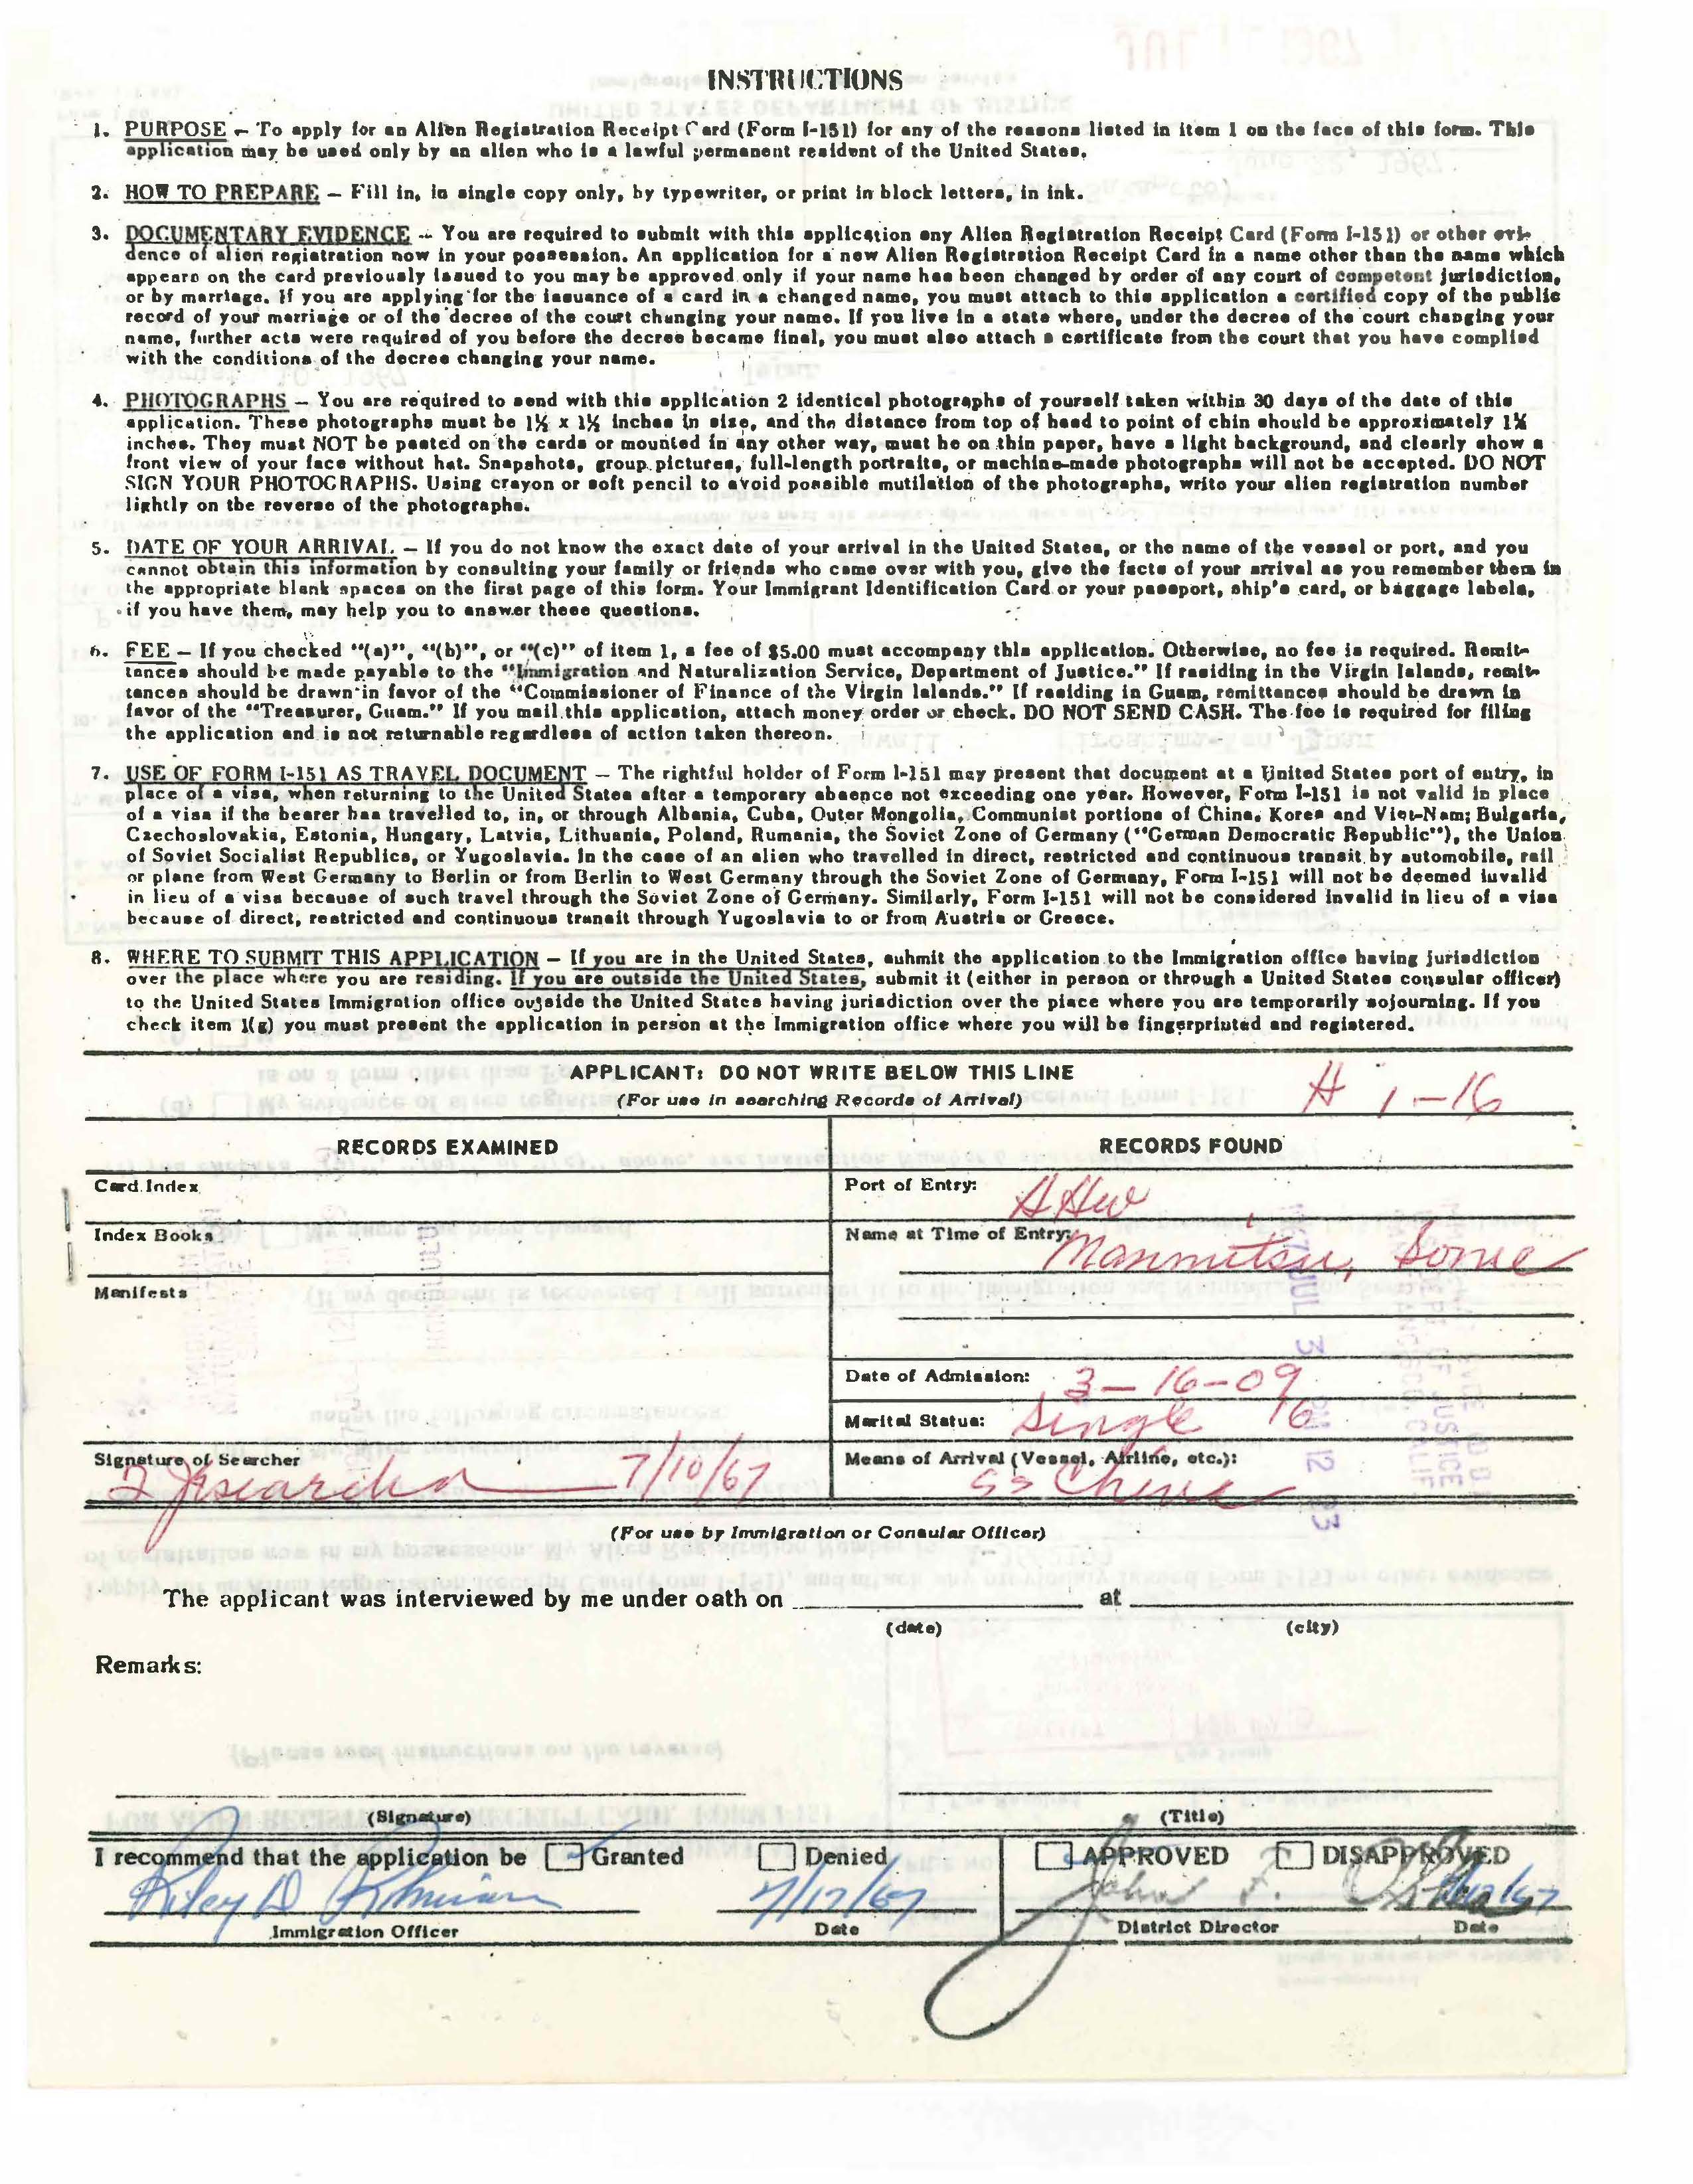 INSTRUCTIONS
1. PURPOSE - To apply for an Alien Registration Receipt Card (Form I-151) for any of the reasons listed in item 1 on the face of this form. This
application may be used only by an alien who is a lawful permanent resident of the United States.
2. HOW TO PREPARE - Fill in, in single copy only, by typewriter, or print in block letters, in ink.
3. DOCUMENTARY EVIDENCE - You are required to submit with this application any Alien Registration Receipt Card (Form I-151) or other evi-
dence of alien registration now in your possession. An application for a new Alien Registration Receipt Card in a name other than the name which
appears on the card previously issued to you may be approved only if your name has been changed by order of any court of competent jurisdiction,
or by marriage. If you are applying for the issuance of a card in a changed name, you must attach to this application a certified copy of the public
record of your marriage or of the decree of the court changing your name. If you live in a state where, under the decree of the court changing your
name, further acts were required of you before the decree became final, you must also attach a certificate from the court that you have complied
with the conditions of the decree changing your name.
4. PHOTOGRAPHS - You are required to send with this application 2 identical photographs of yourself taken within 30 days of the date of this
application. These photographs must be 1½ x 1½ inches in size, and the distance from top of head to point of chin should be approximately 1¼
inches. They must NOT be pasted on the cards or mounted in any other way, must be on thin paper, have a light background, and clearly show a
front view of your face without hat. Snapshots, group pictures, full-length portraits, or machine-made photographs will not be accepted. DO NOT
SIGN YOUR PHOTOGRAPHS. Using crayon or soft pencil to avoid possible mutilation of the photographs, write your alien registration number
lightly on the reverse of the photographs.
5. DATE OF YOUR ARRIVAL - If you do not know the exact date of your arrival in the United States, or the name of the vessel or port, and you
cannot obtain this information by consulting your family or friends who came over with you, give the facts of your arrival as you remember them in
the appropriate blank spaces on the first page of this form. Your Immigrant Identification Card or your passport, ship's card, or baggage labels,
if you have them, may help you to answer these questions.
6. FEE - If you checked "(a)", "(b)", or "(c)" of item 1, a fee of $5.00 must accompany this application. Otherwise, no fee is required. Remit-
tances should be made payable to the "Immigration and Naturalization Service, Department of Justice." If residing in the Virgin Islands, remit-
tances should be drawn in favor of the "Commissioner of Finance of the Virgin Islands." If residing in Guam, remittances should be drawn in
favor of the "Treasurer, Guam." If you mail this application, attach money order or check. DO NOT SEND CASH. The fee is required for filing
the application and is not returnable regardless of action taken thereon.
7. USE OF FORM I-151 AS TRAVEL DOCUMENT - The rightful holder of Form I-151 may present that document at a United States port of entry, in
place of a visa, when returning to the United States after a temporary absence not exceeding one year. However, Form I-151 is not valid in place
of a visa if the bearer has travelled to, in, or through Albania, Cuba, Outer Mongolia, Communist portions of China, Korea and Viet-Nam; Bulgaria,
Czechoslovakia, Estonia, Hungary, Latvia, Lithuania, Poland, Rumania, the Soviet Zone of Germany ("German Democratic Republic"), the Union
of Soviet Socialist Republics, or Yugoslavia. In the case of an alien who travelled in direct, restricted and continuous transit by automobile, rail
or plane from West Germany to Berlin or from Berlin to West Germany through the Soviet Zone of Germany, Form I-151 will not be deemed invalid
in lieu of a visa because of such travel through the Soviet Zone of Germany. Similarly, Form I-151 will not be considered invalid in lieu of a visa
because of direct, restricted and continuous transit through Yugoslavia to or from Austria or Greece.
8. WHERE TO SUBMIT THIS APPLICATION - If you are in the United States, submit the application to the Immigration office having jurisdiction
over the place where you are residing. If you are outside the United States, submit it (either in person or through a United States consular officer)
to the United States Immigration office outside the United States having jurisdiction over the place where you are temporarily sojourning. If you
check item 1(g) you must present the application in person at the Immigration office where you will be fingerprinted and registered.
APPLICANT: DO NOT WRITE BELOW THIS LINE
(For use in searching Records of Arrival)
A 1-16
RECORDS EXAMINED
RECORDS FOUND
Card Index
Port of Entry: HHW
Index Books
Name at Time of Entry: Manmitsu, Sonie
Manifests
Date of Admission: 3-16-09
Marital Status: Single 16
Signature of Searcher 7/10/67
Means of Arrival (Vessel, Airline, etc.): SS China
(For use by Immigration or Consular Officer)
The applicant was interviewed by me under oath on at
(date) (city)
Remarks:
(Signature) (Title)
I recommend that the application be Granted Denied
APPROVED DISAPPROVED
7/17/67
John F.
Immigration Officer Date
District Director Date